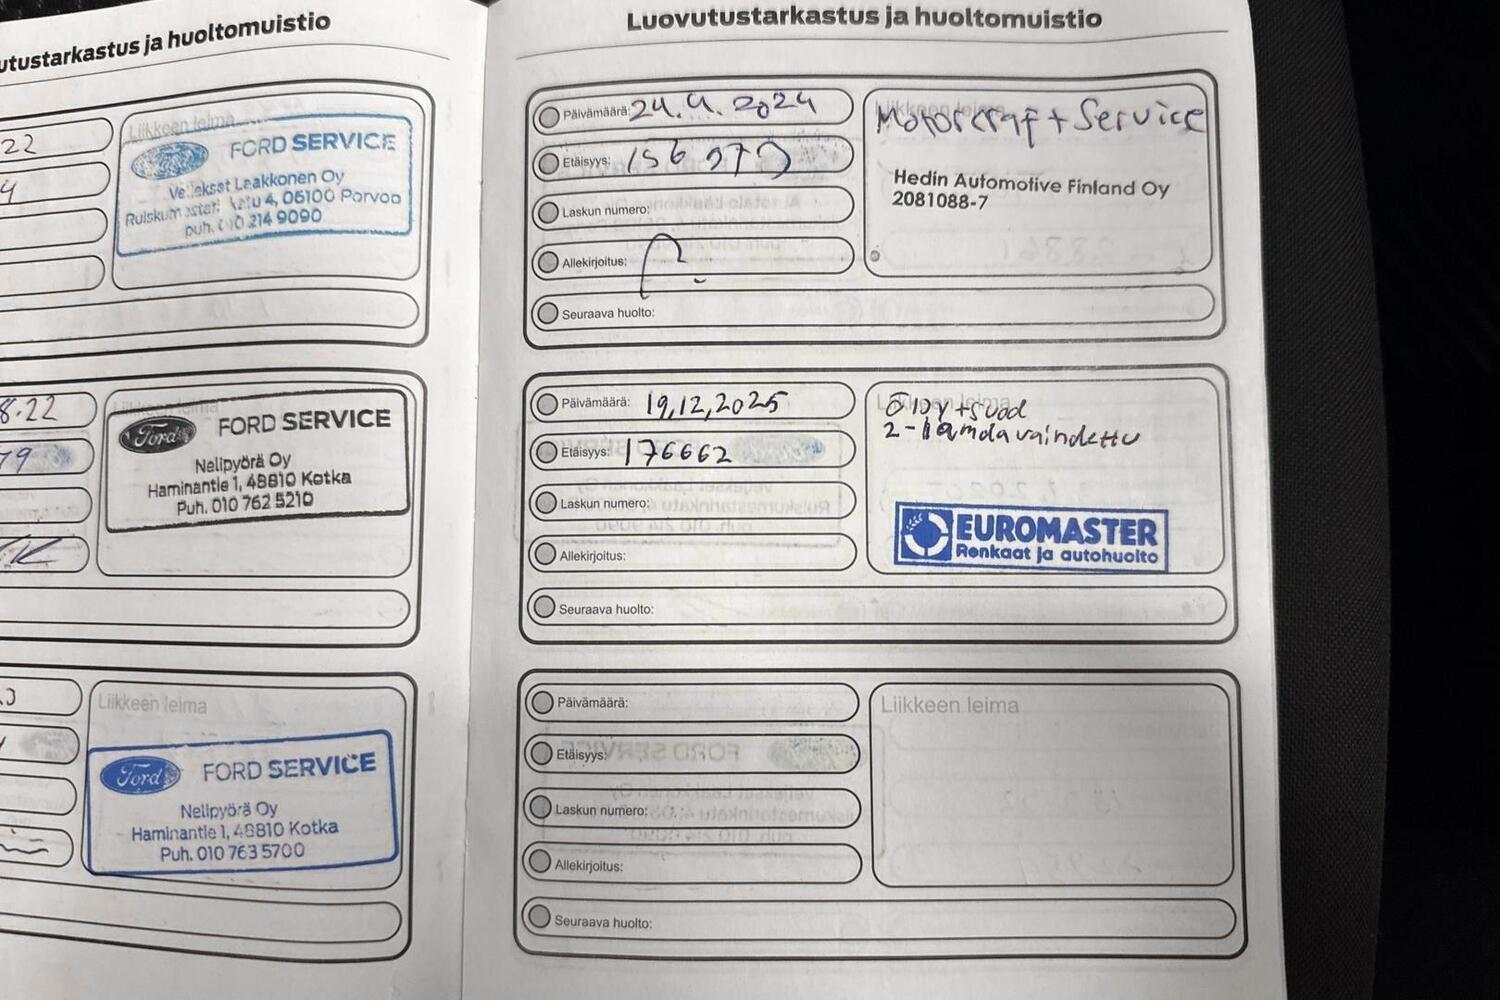 utustarkastus ja huoltomuistio
22
Liikkeen leima
FORD SERVICE
Veljekset Laakkonen Oy
4, 06100 Porvoo
puh. 010 214 9090
8.22
FORD SERVICE
Ford
Nelipyörä Oy
Haminantie 1, 48810 Kotka
Puh. 010 762 5210
79
Liikkeen leima
Ford
FORD SERVICE
Nelipyörä Oy
Haminantie 1, 48810 Kotka
Puh. 010 763 5700
Luovutustarkastus ja huoltomuistio
Päivämäärä: 24.4.2024
Etäisyys:
Laskun numero:
Allekirjoitus:
Seuraava huolto:
Liikkeen leima
Motorcraft Service
Hedin Automotive Finland Oy
2081088-7
Päivämäärä: 19,12,2025
Etäisyys: 176662
Laskun numero:
Allekirjoitus:
Seuraava huolto:
Öljy + suod
2-lamda vaihdettu
EUROMASTER
Renkaat ja autohuolto
Päivämäärä:
Etäisyys:
Laskun numero:
Allekirjoitus:
Seuraava huolto:
Liikkeen leima